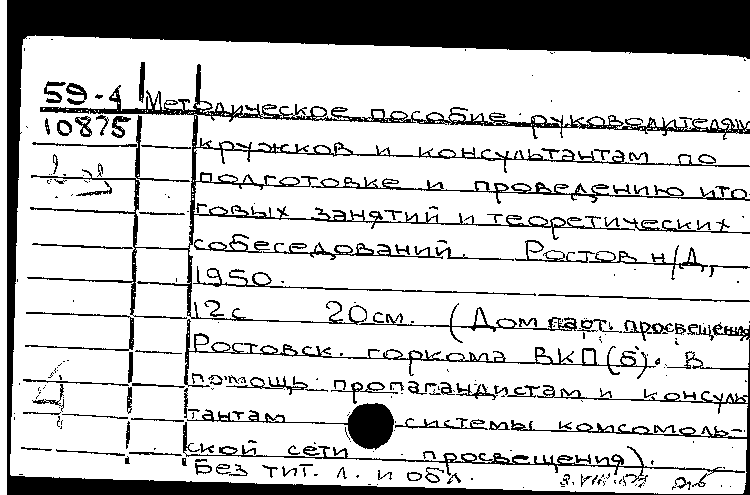 59-4 Методическое пособие руководителям
10875
кружков и консультантам по
подготовке и проведению ито
говых занятий и теоретических
собеседований. Ростов н/Д,
1950.
12с 20см. (Дом парт. просвещения
Ростовск. горкома ВКП(б). В
помощь пропагандистам и консуль
тантам системы комсомоль-
ской сети просвещения).
Без тит. л. и обл.